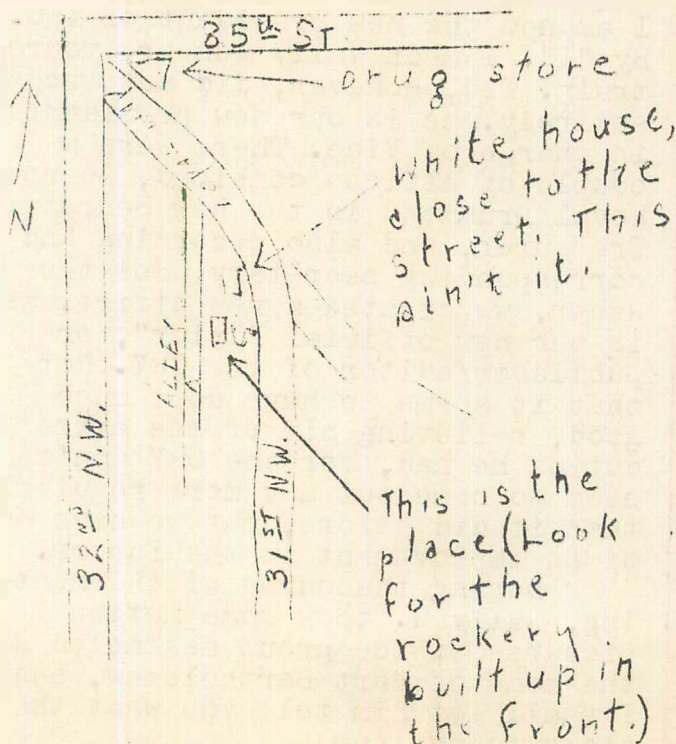 35th ST
drug store
N
white house,
close to the
street. This
ain't it.
ALLEY
32nd N.W.
31ST N.W.
This is the
place (Look
for the
rockery
built up in
the front.)